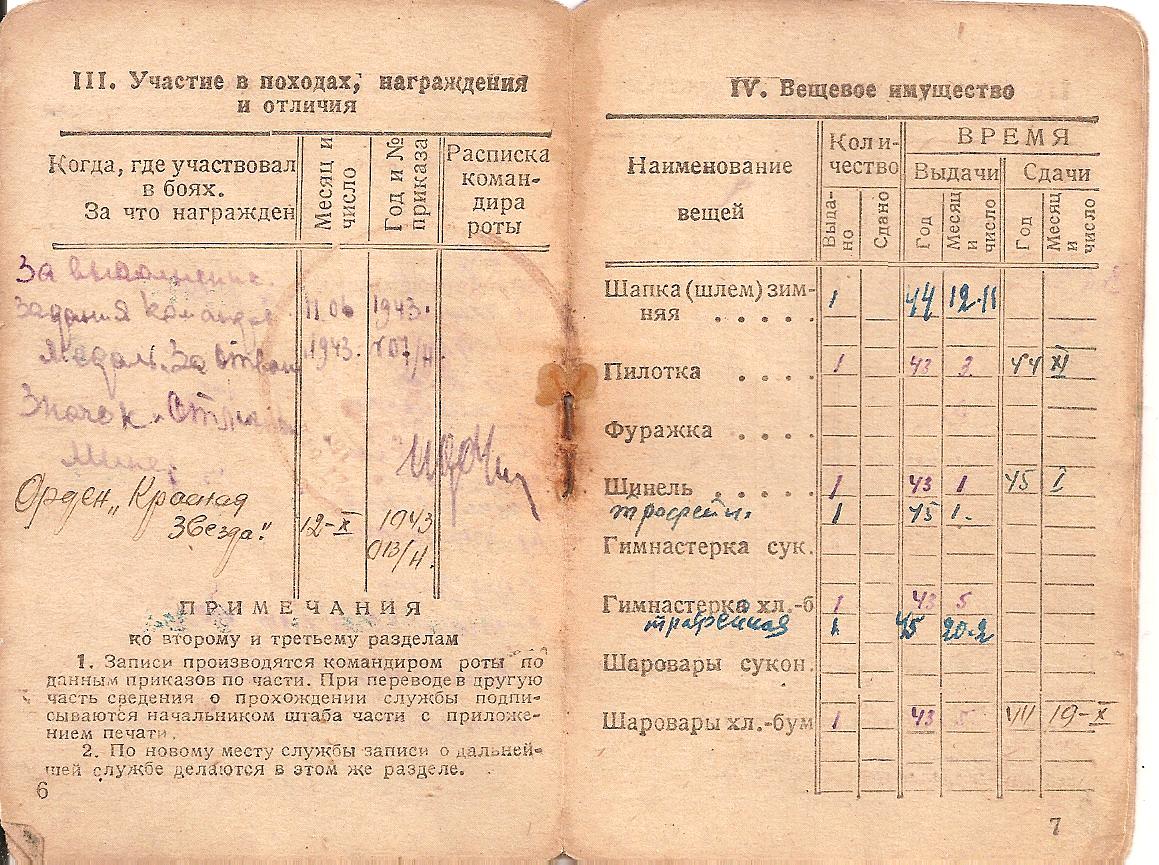 III. Участие в походах, награждения
и отличия
Когда, где участвовал
в боях.
За что награжден
Месяц и
число
Год и №
приказа
Расписка
коман-
дира
роты
За выполнение
задания команд 11.06 1943.
Медаль За 1943. 107/н
Значок
Орден „Красная
Звезда" 12-X 1943
013/н.
ПРИМЕЧАНИЯ
ко второму и третьему разделам
1. Записи производятся командиром роты по
данным приказов по части. При переводе в другую
часть сведения о прохождении службы подпи-
сываются начальником штаба части с приложе-
нием печати.
2. По новому месту службы записи о дальней-
шей службе делаются в этом же разделе.
6
IV. Вещевое имущество
Наименование
вещей
Коли-
чество
ВРЕМЯ
Выдачи
Сдачи
Выда-
но
Сдано
Год
Месяц
и
число
Год
Месяц
и
число
Шапка (шлем) зим-
няя . . . . . 1 44 12.11
Пилотка . . . . 1 43 3 44 XI
Фуражка . . . .
Шинель . . . . . 1 43 1 45 I
трофейн. 1 45 1.
Гимнастерка сук.
Гимнастерка хл.-б 1 43 5
трофейная 1 45 20.2
Шаровары сукон.
Шаровары хл.-бум 1 43 5 19-X
7